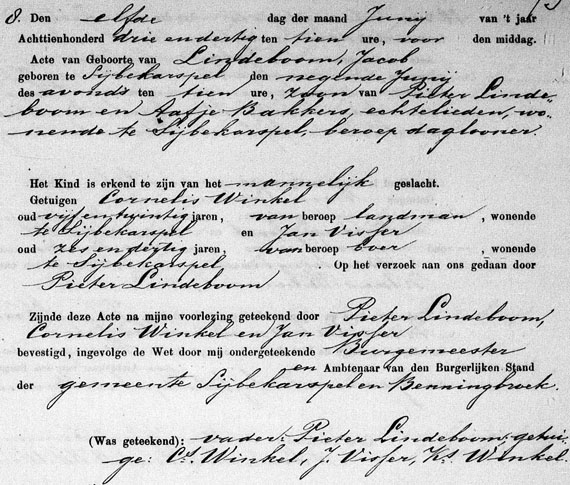 8. Den elfde dag der maand Junij van 't jaar
Achttienhonderd drie en dertig ten tien ure, voor den middag.
Acte van Geboorte van Lindeboom, Jacob
geboren te Sijbekarspel den negende Junij
des avonds ten tien ure, zoon van Pieter Linde-
boom en Aafje Bakkers, echtelieden, wo-
nende te Sijbekarspel, beroep daglooner.
Het Kind is erkend te zijn van het mannelijk geslacht.
Getuigen Cornelis Winkel
oud vijfentwintig jaren, van beroep landman, wonende
te Sijbekarspel en Jan Visser
oud zes en dertig jaren, van beroep boer, wonende
te Sijbekarspel. Op het verzoek aan ons gedaan door
Pieter Lindeboom
Zijnde deze Acte na mijne voorlezing geteekend door Pieter Lindeboom,
Cornelis Winkel en Jan Visser
bevestigd, ingevolge de Wet door mij ondergeteekende Burgemeester
en Ambtenaar van den Burgerlijken Stand
der gemeente Sijbekarspel en Benningbroek.
(Was geteekend): vader: Pieter Lindeboom: getui-
ge: Cs. Winkel, J. Visser, Ks. Winkel.